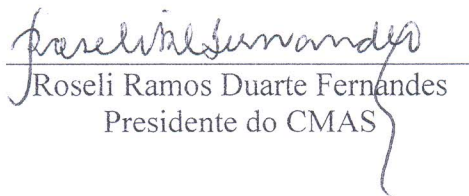 Roseli Ramos Duarte Fernandes
Presidente do CMAS